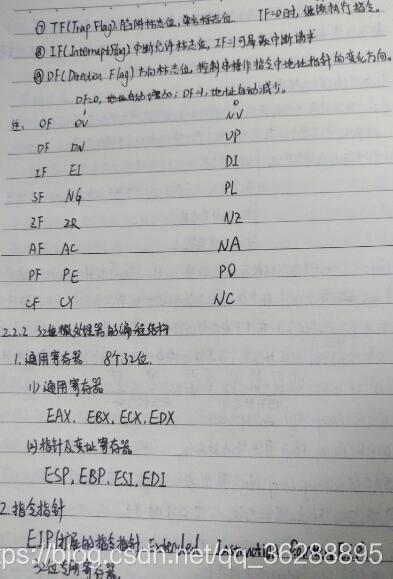 ⑦ TF(Trap Flag)陷阱标志位,单步标志位 TF=0时,继续执行指令。
⑧ IF(Interrupt Flag)中断允许标志位,IF=1可屏蔽中断请求
⑨ DF(Direction Flag)方向标志位,控制串操作指令中地址指针的变化方向。
DF=0,地址自动增加;DF=1,地址自动减少。
1 0
注: OF OV NV
DF DN UP
IF EI DI
SF NG PL
ZF ZR NZ
AF AC NA
PF PE PO
CF CY NC
2.2.2 32位微处理器的编程结构
1.通用寄存器 8个32位
(1)通用寄存器
EAX, EBX, ECX, EDX
(2)指针及变址寄存器
ESP, EBP, ESI, EDI
2.指令指针
EIP(扩展的指令指针, Extended Instruction
32位专用寄存器。
https://blog.csdn.net/qq_36288895